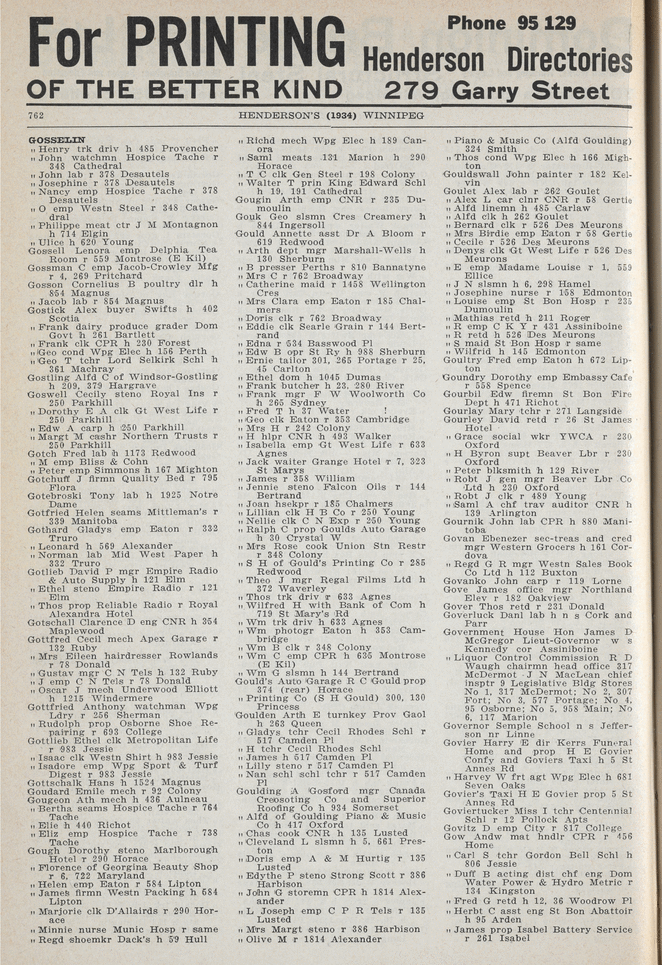 For PRINTING
OF THE BETTER KIND
Phone 95 129
Henderson Directories
279 Garry Street
762
HENDERSON'S (1934) WINNIPEG
GOSSELIN
" Henry trk driv h 485 Provencher
" John watchmn Hospice Tache r
348 Cathedral
" John lab r 378 Desautels
" Josephine r 378 Desautels
" Nancy emp Hospice Tache r 378
Desautels
" O emp Westn Steel r 348 Cathe-
dral
" Philippe meat ctr J M Montagnon
h 714 Elgin
" Ulice h 620 Young
Gossell Lenora emp Delphia Tea
Room r 559 Montrose (E Kil)
Gossman C emp Jacob-Crowley Mfg
r 4, 269 Pritchard
Gosson Cornelius B poultry dlr h
854 Magnus
" Jacob lab r 854 Magnus
Gostick Alex buyer Swifts h 402
Scotia
" Frank dairy produce grader Dom
Govt h 261 Bartlett
" Frank clk CPR h 230 Forest
" Geo cond Wpg Elec h 156 Perth
" Geo T tchr Lord Selkirk Schl h
361 Machray
Gostling Alfd C of Windsor-Gostling
h 209, 379 Hargrave
Goswell Cecily steno Royal Ins r
250 Parkhill
" Dorothy E A clk Gt West Life r
250 Parkhill
" Edw A carp h 250 Parkhill
" Margt M cashr Northern Trusts r
250 Parkhill
Gotch Fred lab h 1173 Redwood
" M emp Bliss & Cohn
" Peter emp Simmons h 167 Mighton
Gotchuff J firmn Quality Bed r 795
Flora
Gotebroski Tony lab h 1925 Notre
Dame
Gotfried Helen seams Mittleman's r
339 Manitoba
Gothard Gladys emp Eaton r 332
Truro
" Leonard h 569 Alexander
" Norman lab Mid West Paper h
332 Truro
Gotlieb David P mgr Empire Radio
& Auto Supply h 121 Elm
" Ethel steno Empire Radio r 121
Elm
" Thos prop Reliable Radio r Royal
Alexandra Hotel
Gotschall Clarence D eng CNR h 354
Maplewood
Gottfred Cecil mech Apex Garage r
132 Ruby
" Mrs Eileen hairdresser Rowlands
r 78 Donald
" Gustav mgr C N Tels h 132 Ruby
" J emp C N Tels r 78 Donald
" Oscar J mech Underwood Elliott
h 1215 Windermere
Gottfried Anthony watchman Wpg
Ldry r 256 Sherman
" Rudolph prop Osborne Shoe Re-
pairing r 693 College
Gottlieb Ethel clk Metropolitan Life
r 983 Jessie
" Isaac clk Westn Shirt h 983 Jessie
" Isadore emp Wpg Sport & Turf
Digest r 983 Jessie
Gottschalk Hans h 1524 Magnus
Goudard Emile mech r 92 Colony
Gougeon Ath mech h 436 Aulneau
" Bertha seams Hospice Tache r 764
Tache
" Elie h 440 Richot
" Eliz emp Hospice Tache r 738
Tache
Gough Dorothy steno Marlborough
Hotel r 290 Horace
" Florence of Georgina Beauty Shop
r 6, 722 Maryland
" Helen emp Eaton r 584 Lipton
" James firmn Westn Packing h 684
Lipton
" Marjorie clk D'Allairds r 290 Hor-
ace
" Minnie nurse Munic Hosp r same
" Regd shoemkr Dack's h 59 Hull
" Richd mech Wpg Elec h 189 Can-
ora
" Saml meats 131 Marion h 290
Horace
" T C clk Gen Steel r 198 Colony
" Walter T prin King Edward Schl
h 19, 191 Cathedral
Gougin Arth emp CNR r 235 Du-
moulin
Gouk Geo slsmn Cres Creamery h
844 Ingersoll
Gould Annette asst Dr A Bloom r
619 Redwood
" Arth dept mgr Marshall-Wells h
130 Sherburn
" B presser Perths r 810 Bannatyne
" Mrs C r 762 Broadway
" Catherine maid r 1458 Wellington
Cres
" Mrs Clara emp Eaton r 185 Chal-
mers
" Doris clk r 762 Broadway
" Eddie clk Searle Grain r 144 Bert-
rand
" Edna r 534 Basswood Pl
" Edw B opr St Ry h 988 Sherburn
" Ernie tailor 301, 265 Portage r 25,
45 Carlton
" Ethel dom h 1045 Dumas
" Frank butcher h 23, 280 River
" Frank mgr F W Woolworth Co
h 265 Sydney
" Fred T h 37 Water
" Geo clk Eaton r 353 Cambridge
" Mrs H r 242 Colony
" H hlpr CNR h 493 Walker
" Isabella emp Gt West Life r 633
Agnes
" Jack waiter Grange Hotel r 7, 323
St Marys
" James r 358 William
" Jennie steno Falcon Oils r 144
Bertrand
" Joan hsekpr r 185 Chalmers
" Lillian clk H B Co r 250 Young
" Nellie clk C N Exp r 250 Young
" Ralph C prop Goulds Auto Garage
h 30 Crystal W
" Mrs Rose cook Union Stn Restr
r 348 Colony
" S H of Gould's Printing Co r 285
Redwood
" Theo J mgr Regal Films Ltd h
372 Waverley
" Thos trk driv r 633 Agnes
" Wilfred H with Bank of Com h
719 St Mary's Rd
" Wm trk driv h 633 Agnes
" Wm photogr Eaton h 353 Cam-
bridge
" Wm B clk r 348 Colony
" Wm C emp CPR h 635 Montrose
(E Kil)
" Wm G slsmn h 144 Bertrand
Gould's Auto Garage R C Gould prop
374 (rear) Horace
" Printing Co (S H Gould) 300, 130
Princess
Goulden Arth E turnkey Prov Gaol
h 263 Queen
" Gladys tchr Cecil Rhodes Schl r
517 Camden Pl
" H tchr Cecil Rhodes Schl
" James h 517 Camden Pl
" Lilly steno r 517 Camden Pl
" Nan schl schl tchr r 517 Camden
Pl
Goulding A Gosford mgr Canada
Creosoting Co and Superior
Roofing Co h 934 Somerset
" Alfd of Goulding Piano & Music
Co h 417 Oxford
" Chas cook CNR h 135 Lusted
" Cleveland L slsmn h 5, 661 Pres-
ton
" Doris emp A & M Hurtig r 135
Lusted
" Edythe P steno Strong Scott r 386
Harbison
" John G storemn CPR h 1814 Alex-
ander
" L Joseph emp C P R Tels r 135
Lusted
" Mrs Margt steno r 386 Harbison
" Olive M r 1814 Alexander
" Piano & Music Co (Alfd Goulding)
324 Smith
" Thos cond Wpg Elec h 166 Migh-
ton
Gouldswall John painter r 182 Kel-
vin
Goulet Alex lab r 262 Goulet
" Alex L car clnr CNR r 58 Gertie
" Alfd linemn h 485 Carlaw
" Alfd clk h 262 Goulet
" Bernard clk r 526 Des Meurons
" Mrs Birdie emp Eaton r 58 Gertie
" Cecile r 526 Des Meurons
" Denys clk Gt West Life r 526 Des
Meurons
" E emp Madame Louise r 1, 559
Ellice
" J N slsmn h 6, 298 Hamel
" Josephine nurse r 158 Edmonton
" Louise emp St Bon Hosp r 235
Dumoulin
" Mathias retd h 211 Roger
" R emp C K Y r 431 Assiniboine
" R retd h 526 Des Meurons
" S maid St Bon Hosp r same
" Wilfrid h 145 Edmonton
Goultry Fred emp Eaton h 672 Lip-
ton
Goundry Dorothy emp Embassy Cafe
r 558 Spence
Gourbil Edw firemn St Bon Fire
Dept h 471 Richot
Gourlay Mary tchr r 271 Langside
Gourley David retd r 26 St James
Hotel
" Grace social wkr YWCA r 230
Oxford
" H Byron supt Beaver Lbr r 230
Oxford
" Peter blksmith h 129 River
" Robt J gen mgr Beaver Lbr Co
Ltd h 230 Oxford
" Robt J clk r 489 Young
" Saml A chf trav auditor CNR h
139 Arlington
Gournik John lab CPR h 880 Mani-
toba
Govan Ebenezer sec-treas and cred
mgr Western Grocers h 161 Cor-
dova
" Regd G R mgr Westn Sales Book
Co Ltd h 112 Buxton
Govanko John carp r 119 Lorne
Gove James office mgr Northland
Elev r 182 Oakview
Gover Thos retd r 231 Donald
Goverluck Danl lab h n s Cork and
Parr
Government House Hon James D
McGregor Lieut-Governor w s
Kennedy cor Assiniboine
" Liquor Control Commission R D
Waugh chairmn head office 317
McDermot J N MacLean chief
insptr 9 Legislative Bldg Stores
No 1, 317 McDermot; No 2, 307
Fort; No 3, 577 Portage; No 4,
95 Osborne; No 5, 958 Main; No
6, 117 Marion
Governor Semple School n s Jeffer-
son nr Linne
Govier Harry E dir Kerrs Funeral
Home and prop H E Govier
Confy and Goviers Taxi h 5 St
Annes Rd
" Harvey W frt agt Wpg Elec h 681
Seven Oaks
Govier's Taxi H E Govier prop 5 St
Annes Rd
Goviertucker Miss I tchr Centennial
Schl r 12 Pollock Apts
Govitz D emp City r 817 College
Gow Andw mat hndlr CPR r 456
Home
" Carl S tchr Gordon Bell Schl h
806 Jessie
" Duff B acting dist chf eng Dom
Water Power & Hydro Metric r
134 Kingston
" Fred G retd h 12, 36 Woodrow Pl
" Herbt C asst eng St Bon Abattoir
h 95 Arden
" James prop Isabel Battery Service
r 261 Isabel